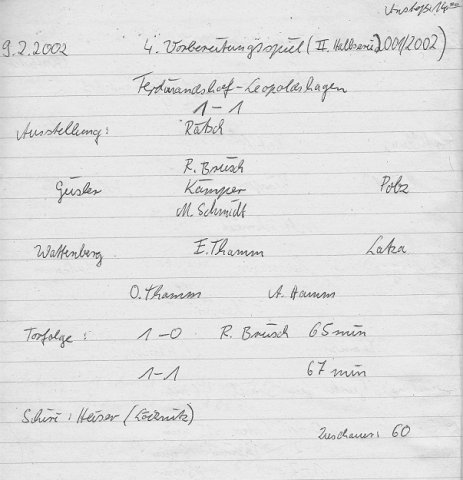 Anstoß: 14⁰⁰
9.2.2002 4. Vorbereitungsspiel (II. Halbserie 2001/2002)
Ferdinandshof-Leopoldshagen
1-1
Austellung: Ratsch
R. Brüsch
Güsler Kämper Polz
M. Schmidt
Wattenberg E. Thamm Latza
O. Thamm A. Hamm
Torfolge: 1-0 R. Brüsch 65 min
1-1 67 min
Schiri: Heiser (Löcknitz)
Zuschauer: 60